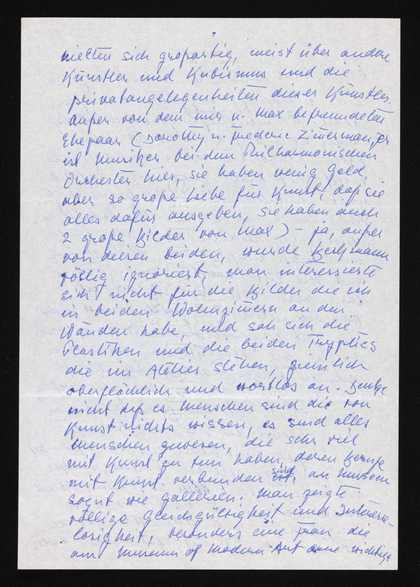 hielten sich großartig, meist über andere
Künstler und Kubismus und die
privatangelegenheiten dieser Künstler.
außer von dem mir u. Max befreundeten
Ehepaar (Dorothy u. Frederic Zimermann, er
ist Musiker bei dem Philharmonischen
Orchester hier, sie haben wenig Geld
aber so große Liebe für Kunst, daß sie
alles dafür ausgeben, sie haben auch
2 große Bilder von Max) – ja, außer
von diesen beiden, wurde Beckmann
völlig ignoriert, man interessierte
sich nicht für die Bilder die ich
in beiden Wohnzimern an den
Wänden habe, und sah sich die
Plastiken und die beiden Tryptics
die im Atelier stehen, ziemlich
oberflächlich und wortlos an. Denke
nicht daß es Menschen sind die von
Kunst nichts wissen, es sind alles
Menschen gewesen, die sehr viel
mit Kunst zu tun haben, deren Berufe
mit Kunst verbunden sind, an Museen
sogut wie Gallerien. Man zeigte
völlige Gleichgültigkeit und Interesse-
losigkeit, besonders eine Frau die
am Museum of Modern Art eine wichtige